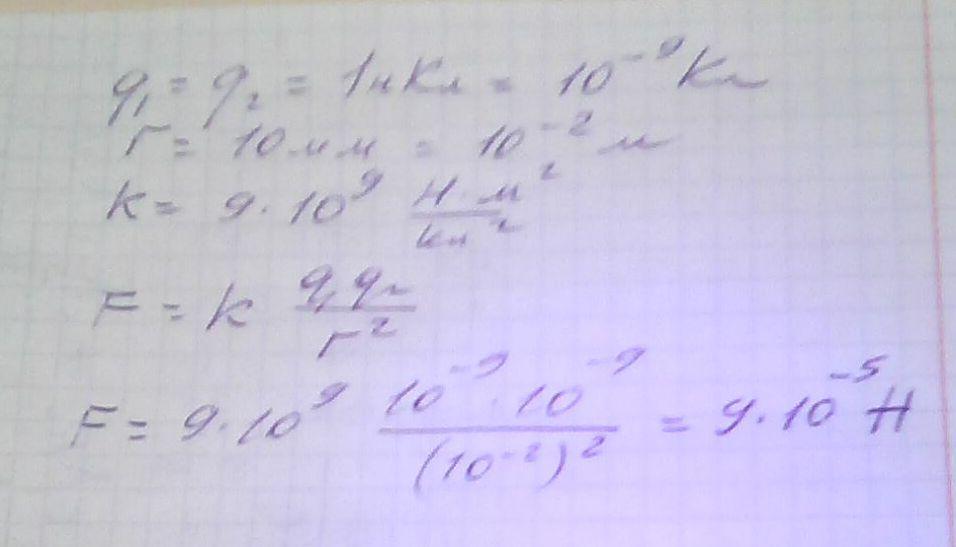 q₁ = q₂ = 1нКл = 10⁻⁹ Кл
r = 10 мм = 10⁻² м
k = 9·10⁹ Н·м²/Кл²
F = k q₁q₂/r²
F = 9·10⁹ 10⁻⁹·10⁻⁹/(10⁻²)² = 9·10⁻⁵ Н